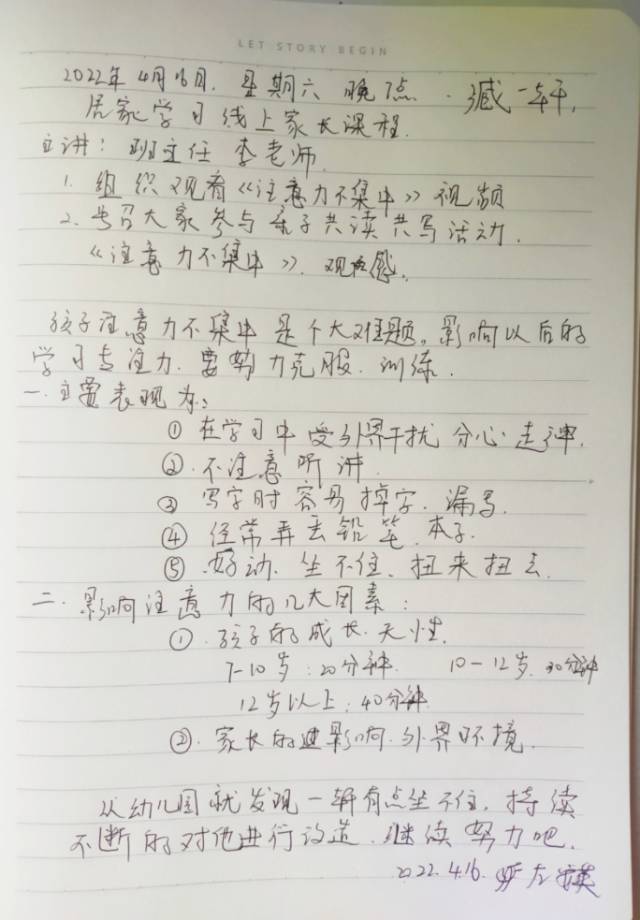 LET STORY BEGIN
2022年4月16日.星期六晚7点.臧一轩,
居家学习线上家长课程.
主讲:班主任 李老师.
1.组织观看《注意力不集中》视频
2.号召大家参与亲子共读共写活动.
《注意力不集中》.观后感.
孩子注意力不集中是个大难题。影响以后的
学习专注力.要努力克服.训练.
一.主要表现为:
①在学习中受外界干扰 分心.走神.
②.不注意听讲.
③写字时容易掉字.漏写.
④经常弄丢铅笔.本子.
⑤.好动.坐不住、扭来扭去.
二.影响注意力的几大因素:
①.孩子的成长.天性.
7-10岁:20分钟. 10-12岁.30分钟
12岁以上:40分钟.
②.家长的影响.外界环境.
从幼儿园就发现一轩有点坐不住.持续
不断的对他进行改造.继续努力吧.
2022.4.16.